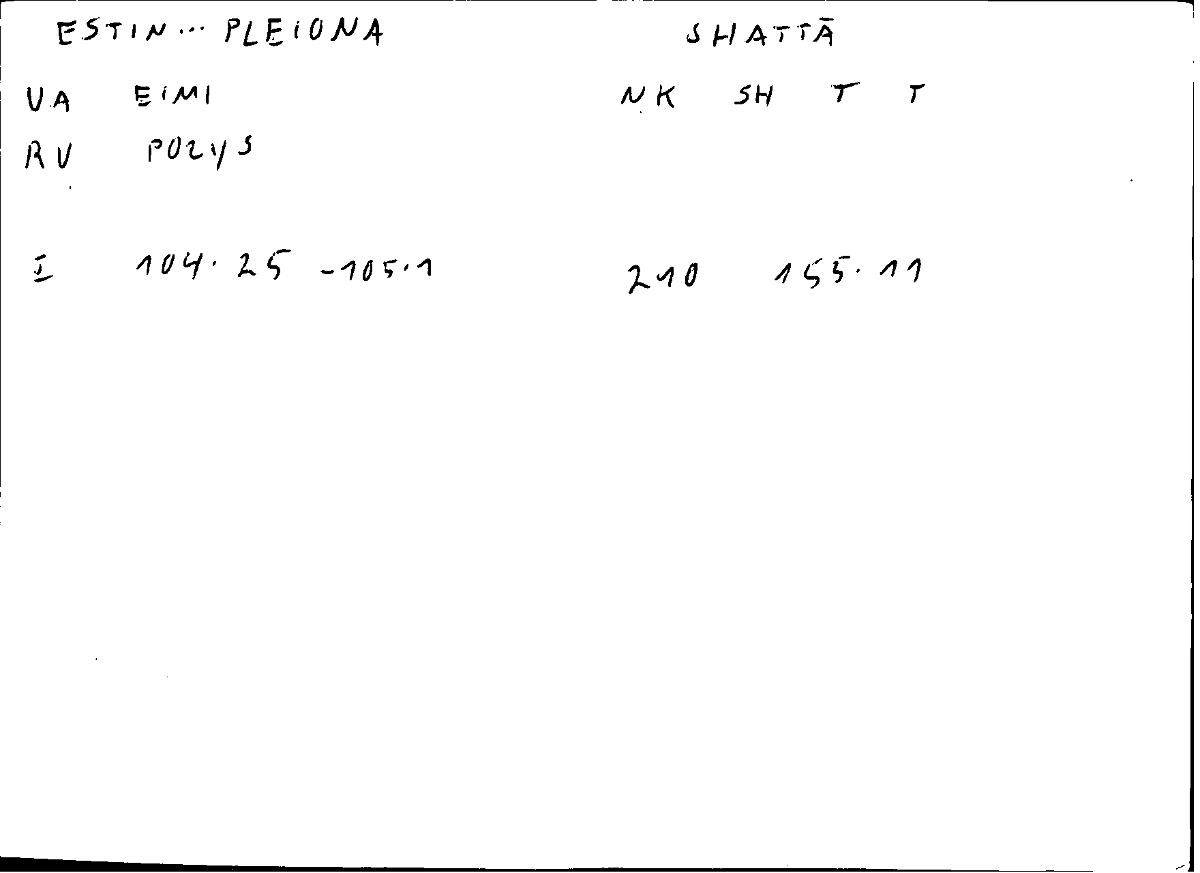 ESTIN... PLEIONA SHATTĀ
VA EIMI NK SH T T
RV POLYS
I 104.25 -105.1 210 155.11